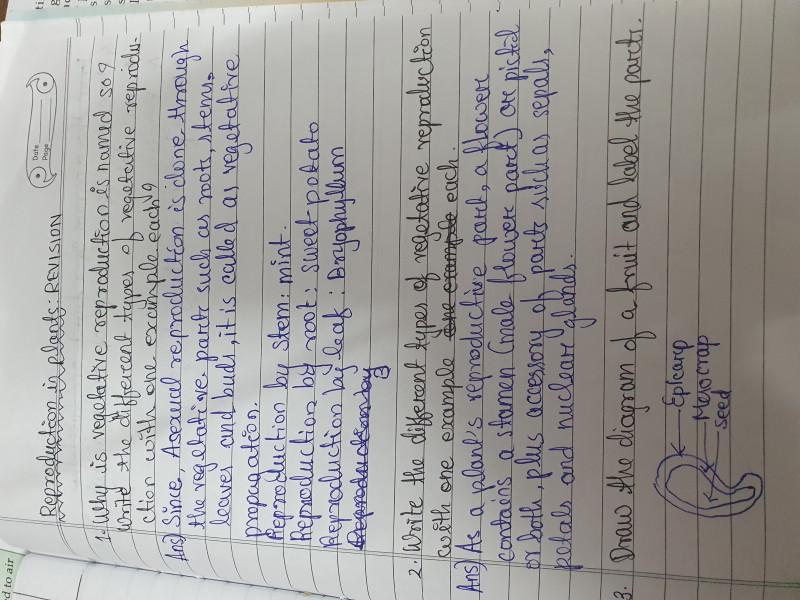 Date
Page
Reproduction in plants: REVISION
1. Why is vegetative reproduction is named so?
Write the different types of vegetative reprodu-
ction with one example each?
Ans) Since, Asexual reproduction is done through
the vegetative parts such as roots, stems,
leaves and buds, it is called as vegetative
propagation.
Reproduction by stem: mint.
Reproduction by root: sweet potato
Reproduction by leaf: Bryophyllum
2. Write the different types of vegetative reproduction
with one example one example each.
Ans) As a plant's reproductive part, a flower
contains a stamen (male flower part) or pistil
or both, plus accessory of parts such as sepals,
petals and nuclear glands.
3. Draw the diagram of a fruit and label the parts.
Epicarp
Mesocrap
seed
d to air